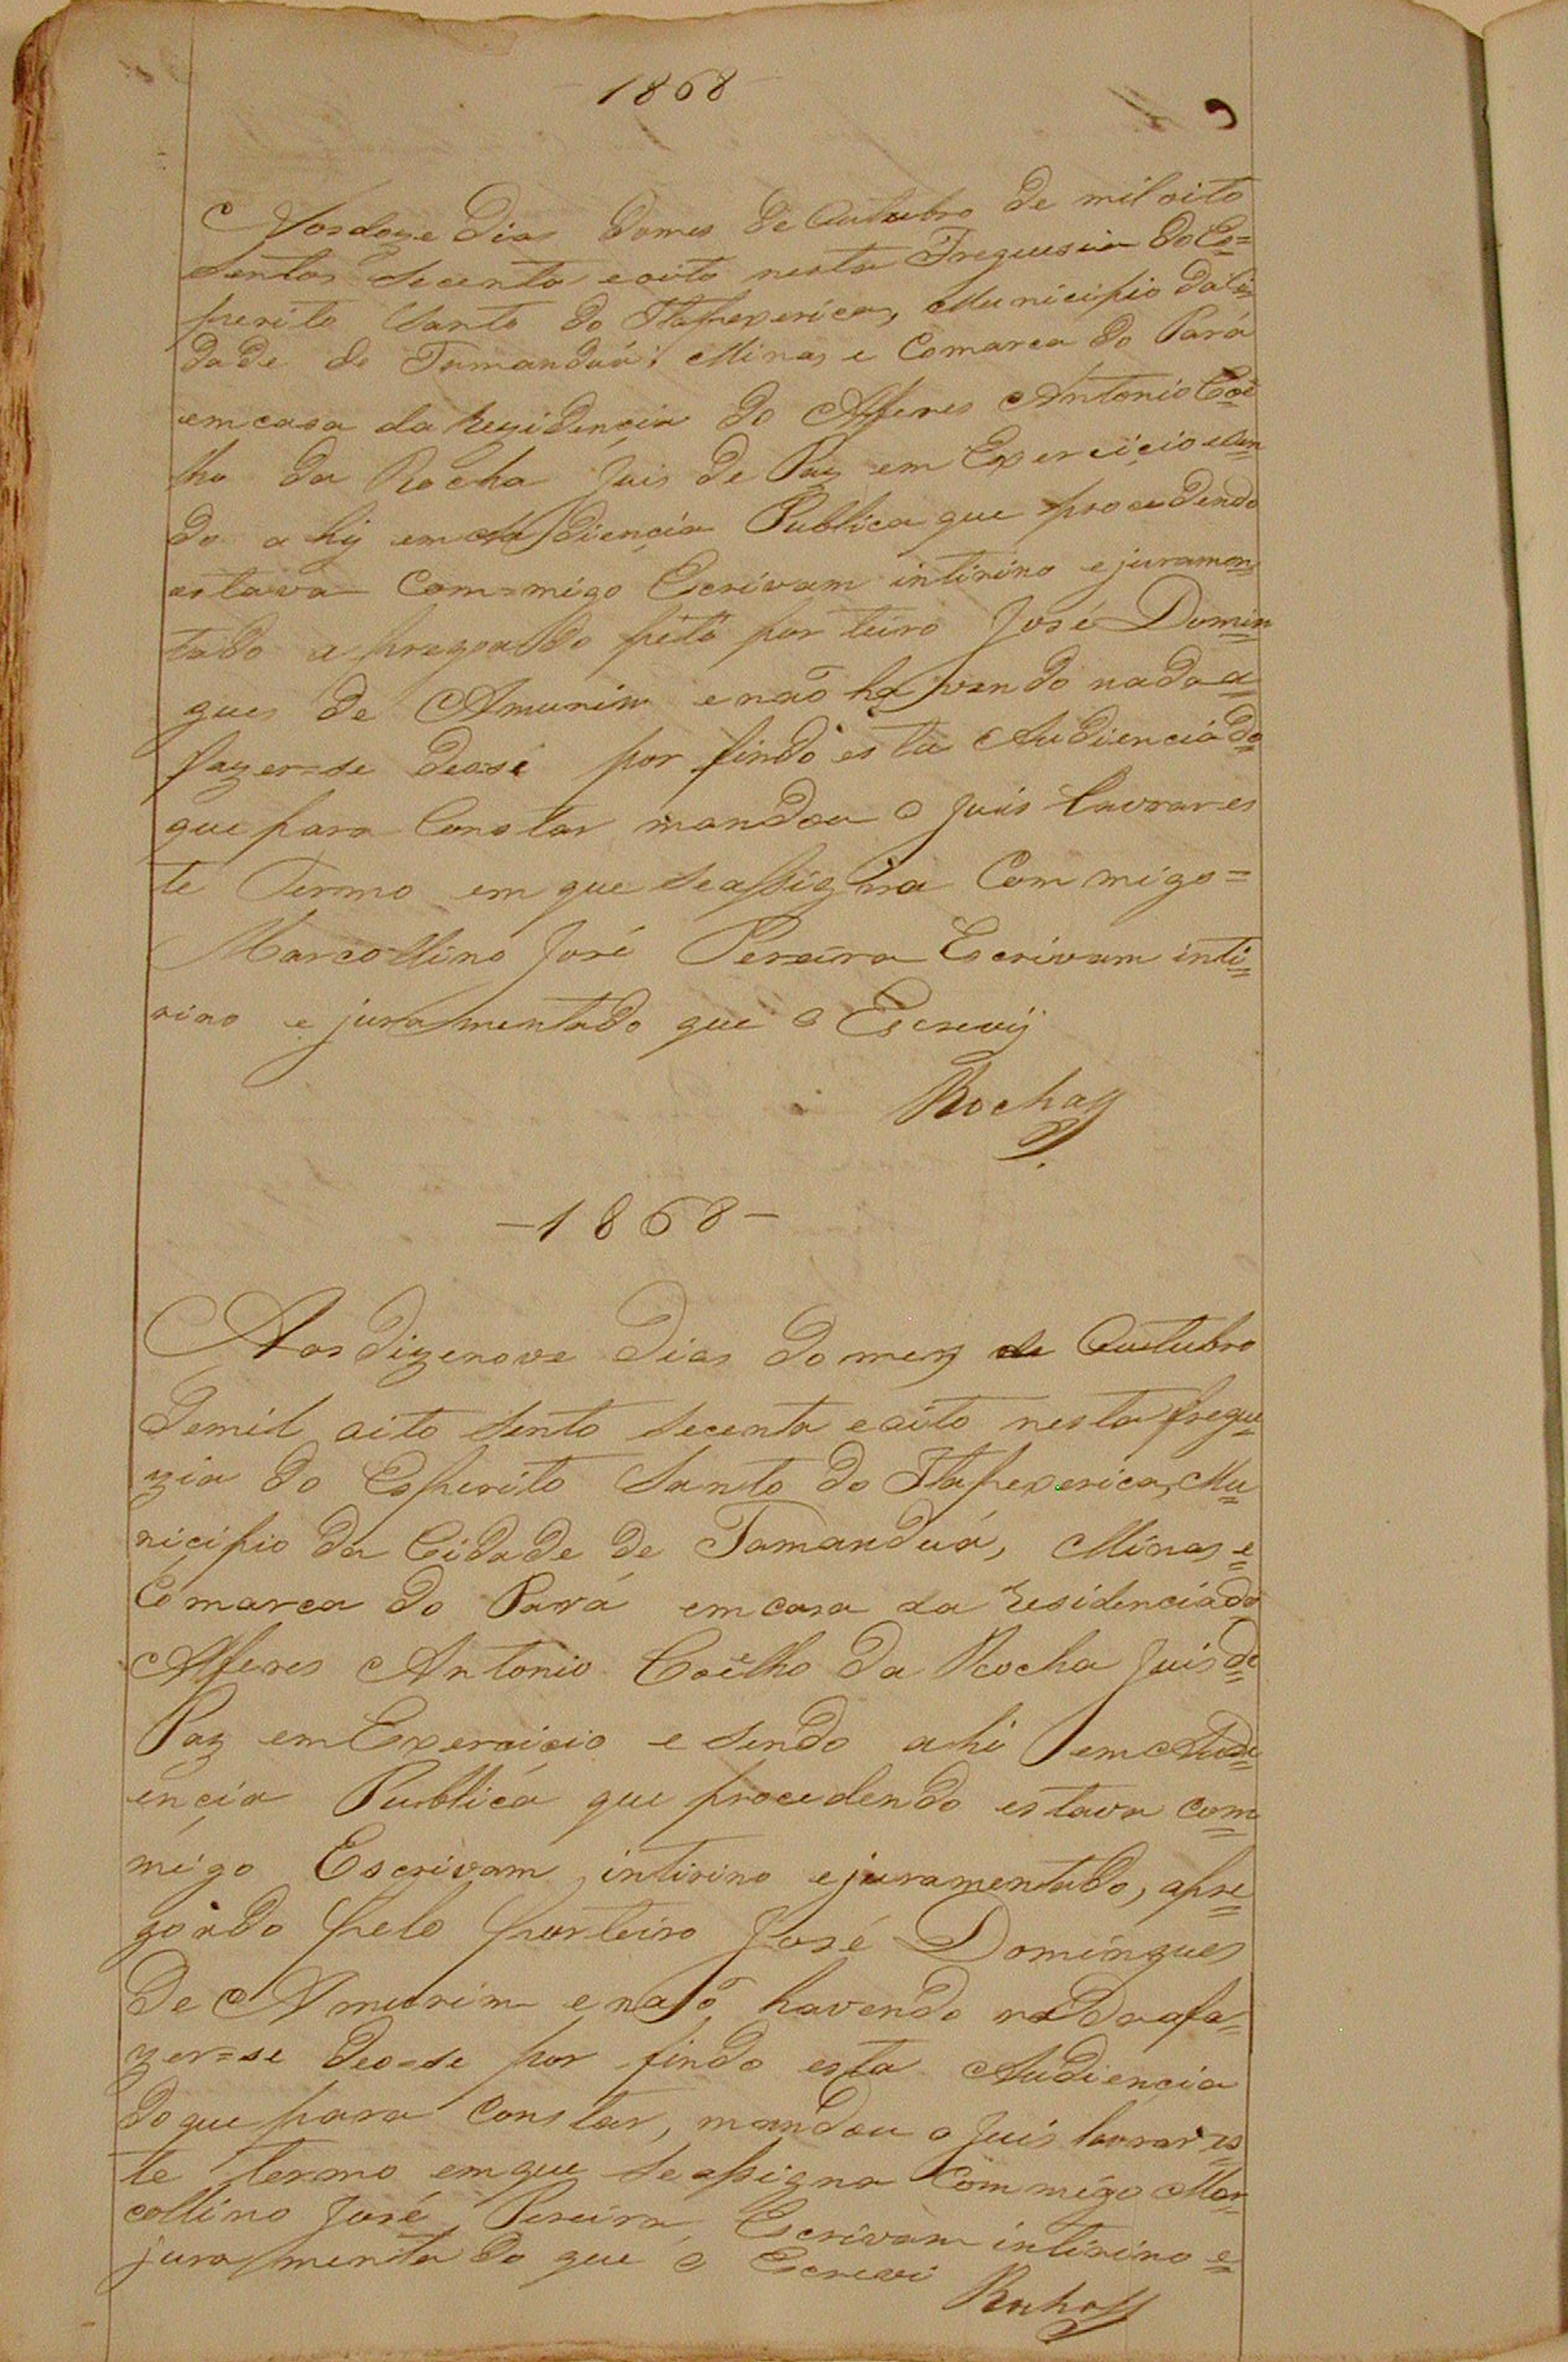 1868
Aos doze Dias do mes de Outubro de mil oito
sentos secenta e oito nesta Freguesia do Es=
perito Santo do Itapexerica, Municipio da Ci=
dade de Tamanduá; Minas e Comarca do Pará
em casa da Rezidençia do Alferes Antonio Coê
lho da Rocha Juis de Paz em Exerciçio e sen
do ahij em Audiençia Publica que procedendo
estava Com=migo Escrivam intirino e juramen
tado apregoado pello porteiro José Domin
gues de Amurim e não havendo nada a
fazer=se deo=se por findo esta Audiencia do
que para Constar mandou o Juis lavrar es
te Termo em que se assigna Com migo=
Marcollino José Pereira Escrivam inti=
rino e juramentado que o Escrevij
Rocha
—1868—
Aos dizenove Dias do mez de Outubro
de mil oito sento secenta e oito nesta fregu=
zia do Esperito Santo do Itapexerica, Mu
nicipio da Cidade de Tamanduá, Minas e
Comarca do Pará em casa da residencia do
Alferes Antonio Coêlho da Rocha Juis de
Paz em Exercicio e sendo ahi em Audi
ençia Publica que procedendo estava com
migo Escrivam intirino e juramentado, apre
goado pelo porteiro José Domingues
de Amurim e não havendo nada a fa=
zer=se deo=se por findo esta Audiençia
do que para Constar, mandou o Juis lavrar es
te termo em que se assigna Com migo Mar
collino José Pereira Escrivam intirino e
juramentado que o Escrevi
Rocha